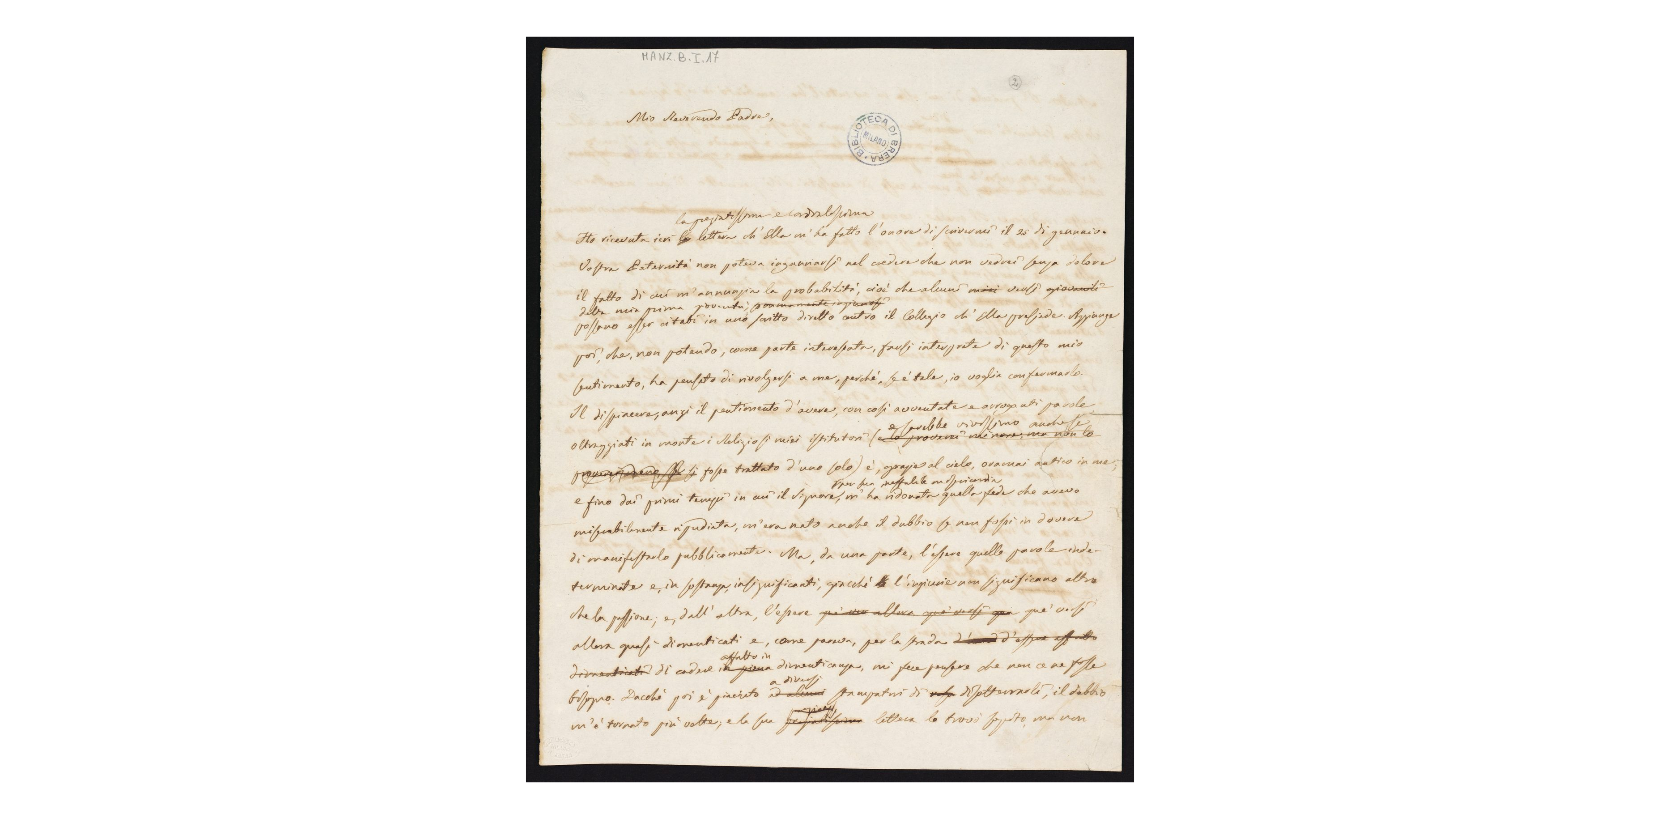 MANZ.B.I.17
2
Mio Reverendo Padre,
BIBLIOTECA DI BRERA
MILANO
la pregiatissima e cordialissima
Ho ricevuta ieri la lettera ch'Ella m'ha fatto l'onore di scrivermi il 25 di gennaio.
Vostra Paternità non poteva ingannarsi nel credere che non vedrei senza dolore
il fatto di cui m'annunzia la probabilità, cioè che alcuni miei versi giovanili
della mia prima gioventù,
possano esser citati in uno scritto diretto contro il Collegio ch'Ella presiede. Aggiunge
poi, che, non potendo, come parte interessata, farsi interprete di questo mio
sentimento, ha pensato di rivolgersi a me, perchè, se è tale, io voglia confermarlo.
Il dispiacere, anzi il pentimento d'avere, con così avventate e arroganti parole
e sarebbe vivissimo anche se
oltraggiati in monte i Religiosi miei istitutori (
si fosse trattato d'uno solo) è, grazie al cielo, oramai antico in me;
per sua ineffabile misericordia
e fino dai primi tempi in cui il Signore, m'ha ridonata quella fede che avevo
miserabilmente ripudiata, m'era nato anche il dubbio se non fossi in dovere
di manifestarlo pubblicamente. Ma, da una parte, l'essere quelle parole inde-
terminate e, in sostanza, insignificanti, giacchè l'ingiurie non significano altro
che la passione; e, dall'altra, l'essere que' versi
allora quasi dimenticati e, come pareva, per la strada d'esser affatto
affatto in
dimenticati di cadere in piena dimenticanza, mi fece pensare che non ce ne fosse
a diversi
bisogno. Dacchè poi è piaciuto ad alcuni stampatori di disotterrarli, il dubbio
m'è tornato più volte; e la sua lettera lo trovò sopito, ma non